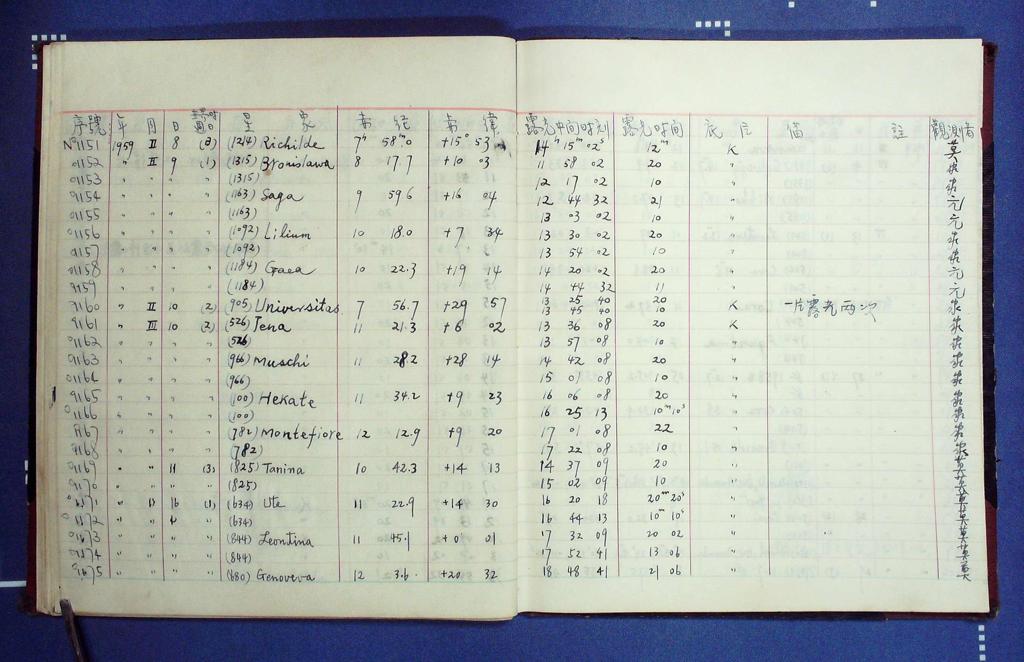 序號 年 月 日 星 象 赤 经 赤 緯 露光中间时刻 露光时间 底 片 備 註 觀測者
Nº9151 1959 II 8 (8) (1214) Richilde 7ʰ 58ᵐ.0 +15° 53' 14ʰ 15ᵐ 02ˢ 12ᵐ K 莫
9152 " II 9 (1) (1315) Bronislawa 8 17.7 +10 03 11 58 02 20 "
9153 " " " (1315) 12 17 02 10 "
9154 " " " (1163) Saga 9 59.6 +16 04 12 44 32 21 " 元
9155 " " " (1163) 13 03 02 10 " 元
9156 " " " (1092) Lilium 10 18.0 +7 34 13 30 02 20 "
9157 " " " (1092) 13 54 02 10 "
9158 " " " (1184) Gaea 10 22.3 +19 14 14 20 02 20 " 元
9159 " " " (1184) 14 44 32 11 " 元
9160 " II 10 (2) (905) Universitas 7 56.7 +29 57 13 25 40 20 K 一片露光两次
13 45 40 10
9161 " III 10 (2) (526) Jena 11 21.3 +6 02 13 36 08 20 K
9162 " " " (526) 13 57 08 10 "
9163 " " " (966) Muschi 11 28.2 +28 14 14 42 08 20 "
9164 " " " (966) 15 07 08 10 "
9165 " " " (100) Hekate 11 34.2 +9 23 16 06 08 20 "
9166 " " " (100) 16 25 13 10ᵐ10ˢ "
9167 " " " (782) Montefiore 12 12.9 +9 20 17 01 08 22 "
9168 " " " (782) 17 22 08 10 "
9169 " " 11 (3) (825) Tanina 10 42.3 +14 13 14 37 09 20 " 莫
9170 " " " (825) 15 02 09 10 " 莫
9171 " " 16 (1) (634) Ute 11 22.9 +14 30 16 20 18 20ᵐ20ˢ " 莫
9172 " " " (634) 16 44 13 10ᵐ10ˢ " 莫
9173 " " " (844) Leontina 11 45.1 +0 01 17 32 09 20 02 " 莫
9174 " " " (844) 17 52 41 13 06 " 莫
9175 " " " (680) Genoveva 12 3.6 +20 32 18 48 41 21 06 " 莫